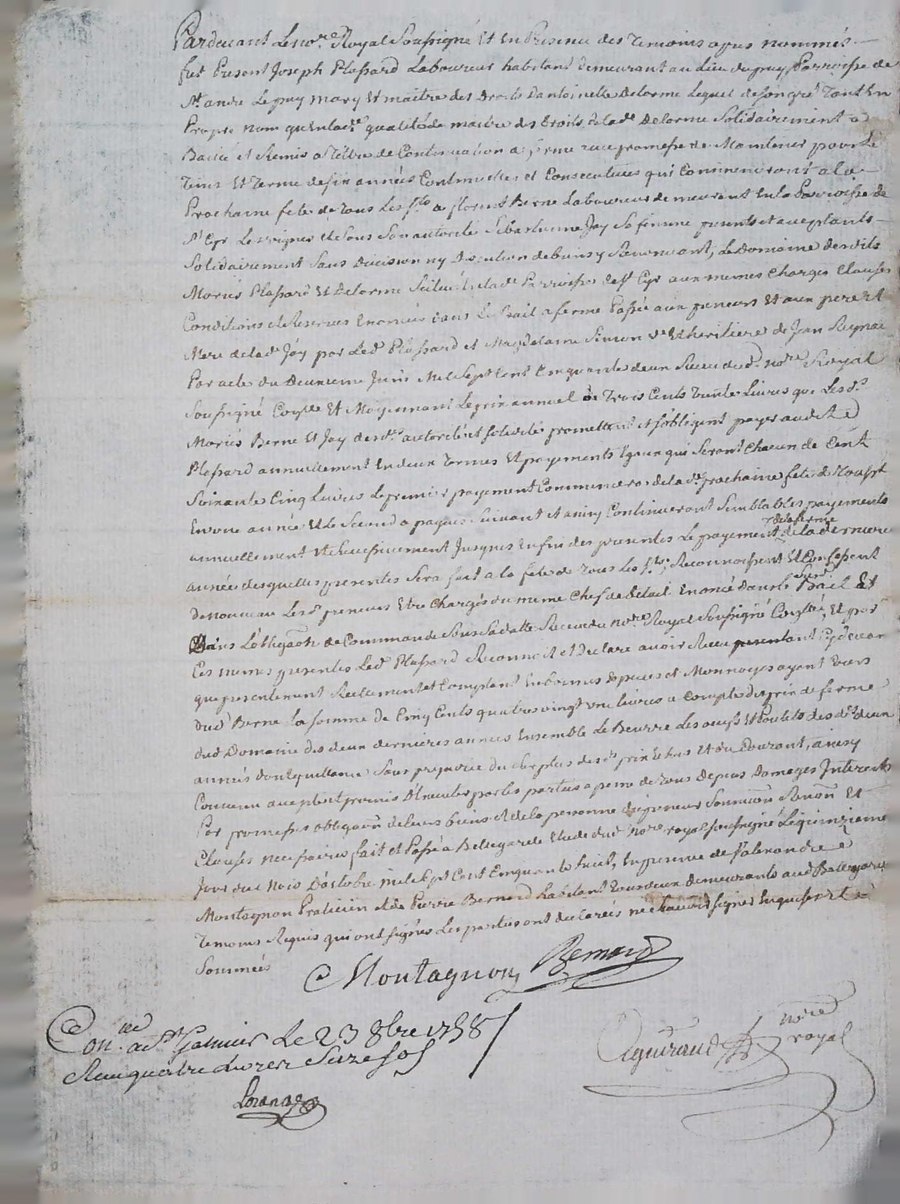 Pardevant Le no.re Royal Soussigné Et En Présence des Temoins apres nommés
fut Present Joseph Plassard Laboureur habitant demeurant au Lieu du puy Parroisse de
st andré Le puy mary Et maitre des Droits D'antoinette Delorme Lequel de Son gré Tant En
Propre nom qu'En lade. qualité de maitre des Droits de lad.e Delorme Solidairement a
Baillé et Remis a Titre de Continuation a ferme avec promesse de Maintenir pour Le
Tems Et Terme de six années Continuelles et Consecutives qui Commenceront a la
Prochaine fete de Tous Les Sts a florent Berne Laboureur demeurant En la Parroisse de
St Cyr Les vignes et de Sous Son autorité a Jay Sa femme presents et acceptants
Solidairement Sans Division ny Discution de biens y Renonçant, Le Domaine desdits
Mariés Plassard Et Delorme Scitué En lad.e Parroisse de st Cyr aux memes Charges Clauses
Conditions et Reserves Enoncées dans Le Bail a ferme Passé aux preneurs Et aux pere et
Mere de lad.e Jay par Led. Plassard et Magdelaine Simon Ve Et heritiere de Jean
Par acte du Deuxieme Juin Mil Sept Cent Cinquante deux Receu dud. no.re Royal
Soussigné Et Moyennant Le prix annuel de Trois Cents Trente Livres que Lesds.
Mariés Berne Et Jay de autorité et solidité promettent et s'obligent payer aud.
Plassard annuellement En deux Termes Et payements Egaux qui Seront Chacun de Cent
Soixante Cinq Livres Le premier payement Commencera de lad.e prochaine fete de
En une année Et Le Second a payer Suivant et ainsy Continueront Semblables payements
annuellement et Successivement Jusques En fin des presentes Le payement de la ferme de la derniere
année desquelles presentes Sera fait a la fete de Tous Les Sts Reconnoissent Et Confessent
de nouveau Lesds. preneurs Etre Chargés du meme Chef de Betail Enoncé dans led. Bail Et
Dans L'obligaon de Commande Sous Sa datte Receue du no.re Royal Soussigné Et par
Ces memes presentes Led. Plassard Reconnoit et Declare avoir Receu
que presentement Reellement et Comptant En bonnes Especes et Monnoyes ayant Cours
dud. Berne La Somme de Cinq Cents quatre vingt un Livres a Compte du prix de ferme
dud. Domaine des deux dernieres années Ensemble Le Beurre Les oeufs Et Poulets desd. deux
années dont quittance Sans prejudice du Surplus desd. prix Echus Et du Courant, ainsy
Convenu accepté et promis D'Executer par les parties a peine de Tous Depens Domages Interests
Par promesses obligaon de Leurs biens Et de la personne du preneur Soumission Renon. Et
Clauses necessaires fait et Passé a Bellegarde Etude dud. no.re royal soussigné Le quinzieme
Jour du Mois D'octobre mil Sept Cent Cinquante huit, En presence de Sr
Montagnon Praticien et de Pierre Bernard habitant Tous deux demeurants aud. Bellegarde
Temoins Requis qui ont signés Les parties ont declarés ne Scavoir signer Enquis Et
Sommées
Montagnon Bernard
Con.lé a St Galmier Le 23 8bre 1758
Receu quatre Livres Seize Sols
Loranges
Aguiraud no.re royal